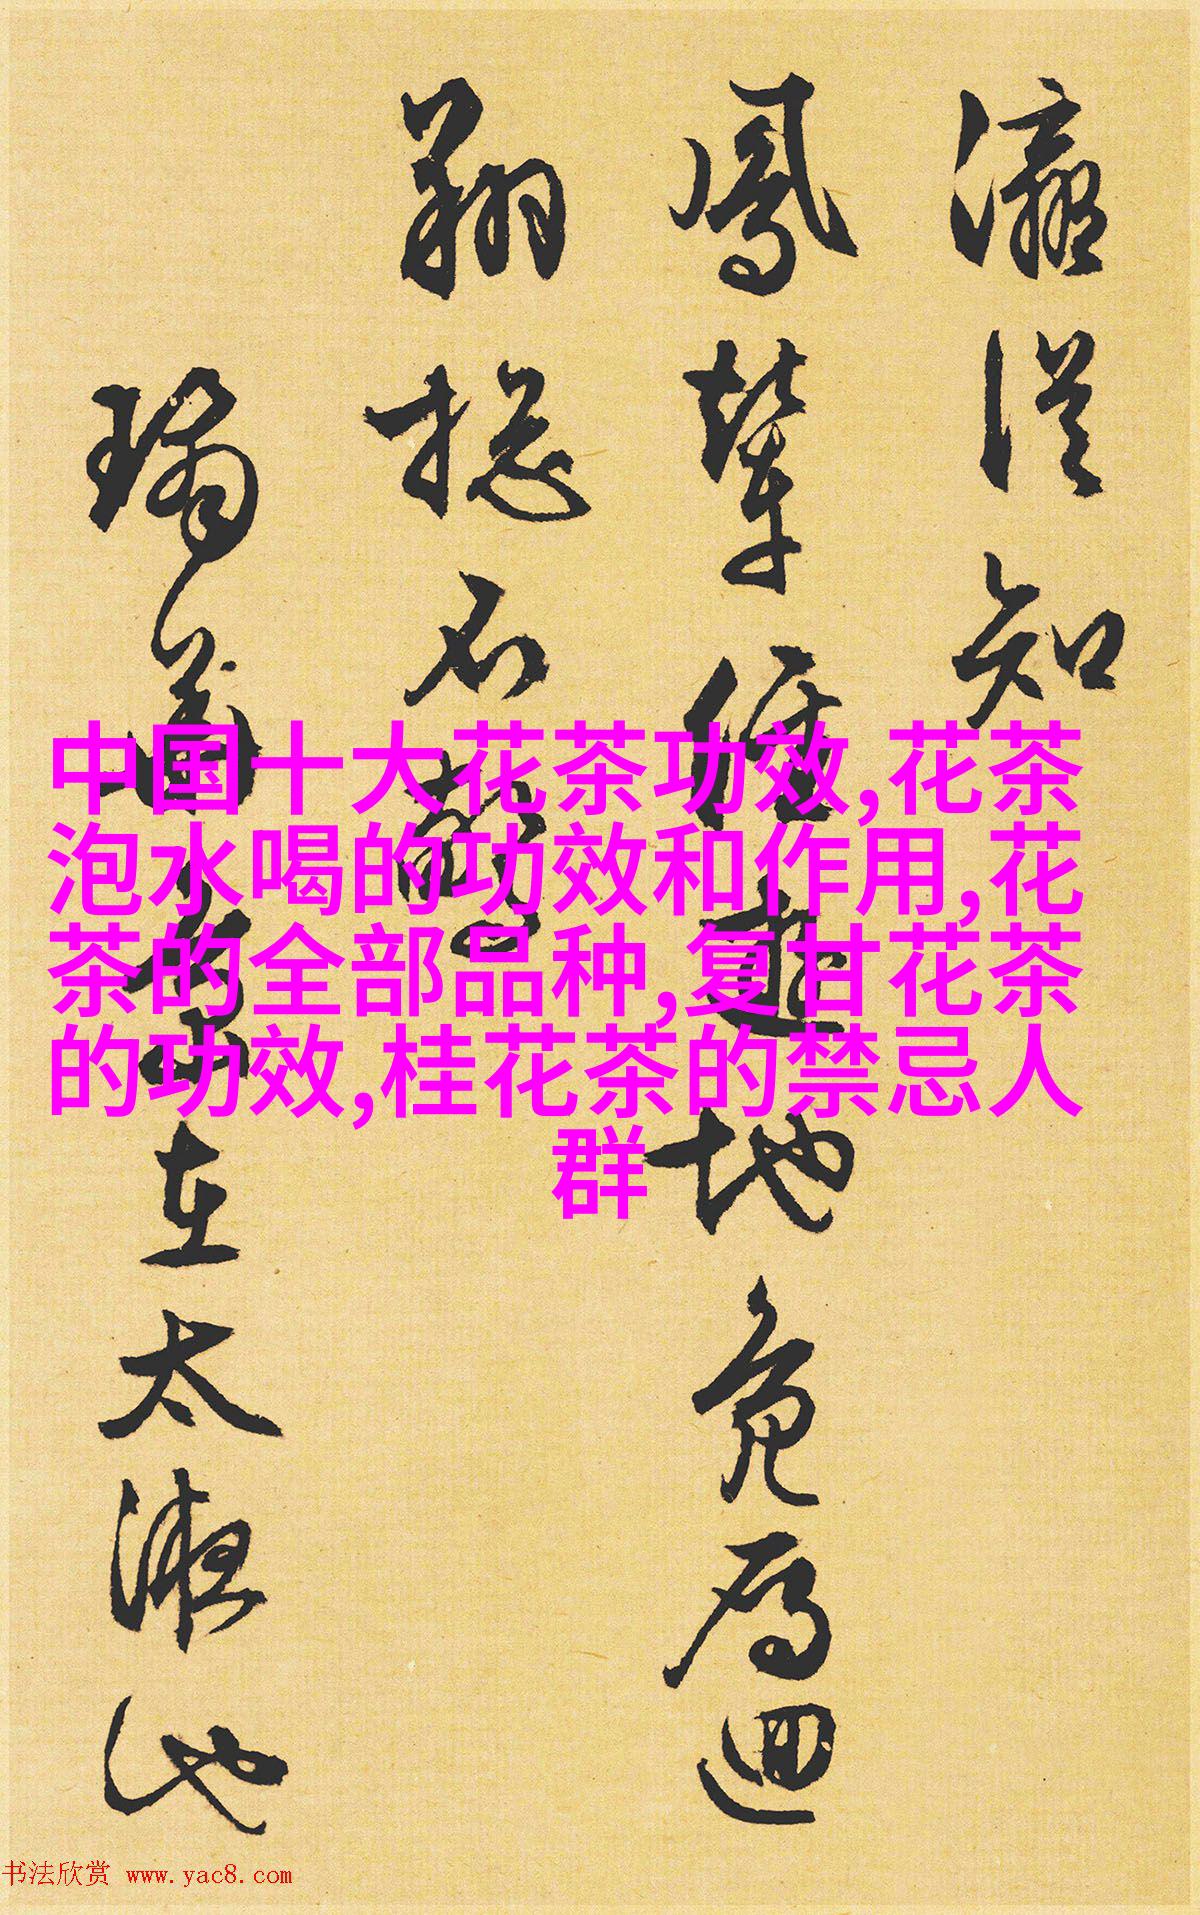 瀛從知
鳳輦經遊地免厲迴
翔抵石磬
瑞 在太液池
中国十大花茶功效,花茶
泡水喝的功效和作用,花
茶的全部品种,复甘花茶
的功效,桂花茶的禁忌人
群
书法欣赏 www.yac8.com